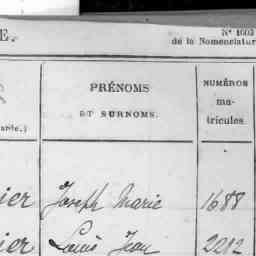 E.
N° 1603
de la Nomenclatur
PRÉNOMS
ET SURNOMS.
NUMÉROS
ma-
tricules.
ier Joseph Marie 1688
ier Louis Jean 2212